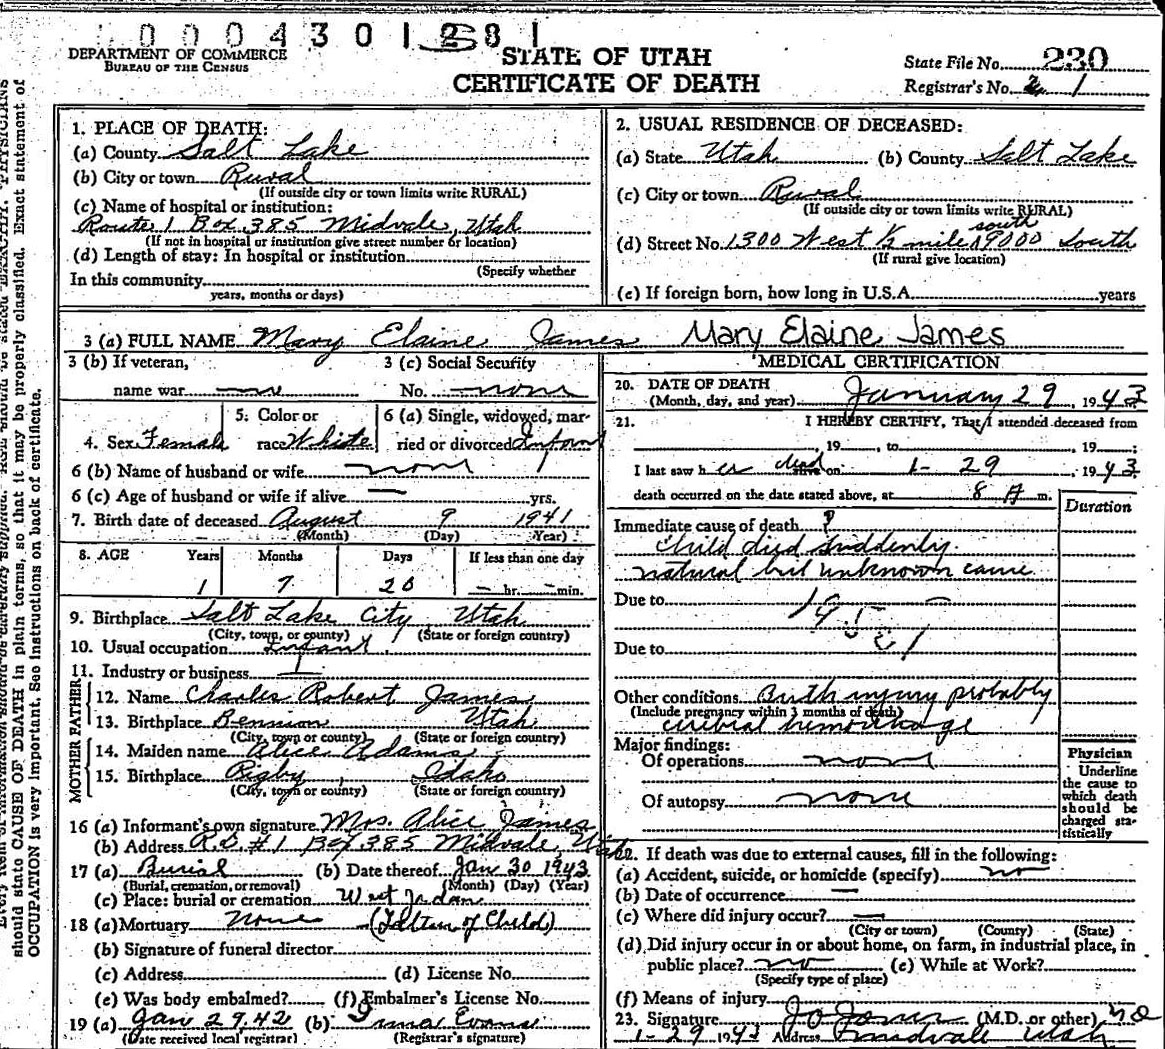 0004301281
DEPARTMENT OF COMMERCE
BUREAU OF THE CENSUS
STATE OF UTAH
CERTIFICATE OF DEATH
State File No. 230
Registrar's No. 1
should state CAUSE OF DEATH in plain terms, so that it may be properly classified. Exact statement of
OCCUPATION is very important. See instructions on back of certificate.
1. PLACE OF DEATH:
(a) County Salt Lake
(b) City or town Rural
(If outside city or town limits write RURAL)
(c) Name of hospital or institution:
Route 1 Box 385 Midvale, Utah
(If not in hospital or institution give street number or location)
(d) Length of stay: In hospital or institution
(Specify whether
In this community
years, months or days)
2. USUAL RESIDENCE OF DECEASED:
(a) State Utah (b) County Salt Lake
(c) City or town Rural
(If outside city or town limits write RURAL)
south
(d) Street No. 1300 West ½ mile 9000 South
(If rural give location)
(e) If foreign born, how long in U.S.A. years
3 (a) FULL NAME Mary Elaine James Mary Elaine James
3 (b) If veteran,
name war
3 (c) Social Security
No. none
4. Sex Female
5. Color or
race White
6 (a) Single, widowed, mar-
ried or divorced Infant
6 (b) Name of husband or wife none
6 (c) Age of husband or wife if alive — yrs.
7. Birth date of deceased August 9 1941
(Month) (Day) (Year)
8. AGE Years Months Days If less than one day
1 7 20 — hr. — min.
9. Birthplace Salt Lake City Utah
(City, town, or county) (State or foreign country)
10. Usual occupation Infant
11. Industry or business
FATHER
12. Name Charles Robert James
13. Birthplace Bennion Utah
(City, town or county) (State or foreign country)
MOTHER
14. Maiden name Alice Adams
15. Birthplace Rigby, Idaho
(City, town or county) (State or foreign country)
16 (a) Informant's own signature Mrs. Alice James
(b) Address R.D. #1 Box 385 Midvale, Utah
17 (a) Burial (b) Date thereof Jan 30 1943
(Burial, cremation, or removal) (Month) (Day) (Year)
(c) Place: burial or cremation West Jordan
18 (a) Mortuary None (Father of Child)
(b) Signature of funeral director
(c) Address (d) License No.
(e) Was body embalmed? (f) Embalmer's License No.
19 (a) Jan 29, 42 (b) Irma Evans
(Date received local registrar) (Registrar's signature)
MEDICAL CERTIFICATION
20. DATE OF DEATH
(Month, day, and year) January 29, 1943
21. I HEREBY CERTIFY, That I attended deceased from
, 19 , to , 19
I last saw her dead alive on 1-29, 1943
death occurred on the date stated above, at 8 A m.
Duration
Immediate cause of death ?
Child died suddenly.
natural but unknown cause
Due to
Due to
Other conditions Birth injury probably
(Include pregnancy within 3 months of death)
cerebral hemorrhage
Major findings:
Of operations none
Of autopsy none
Physician
Underline
the cause to
which death
should be
charged sta-
tistically
22. If death was due to external causes, fill in the following:
(a) Accident, suicide, or homicide (specify) no
(b) Date of occurrence —
(c) Where did injury occur? —
(City or town) (County) (State)
(d) Did injury occur in or about home, on farm, in industrial place, in
public place? no (e) While at Work?
(Specify type of place)
(f) Means of injury
23. Signature Jo Jones (M.D. or other)
1-29 1943 Address Midvale Utah